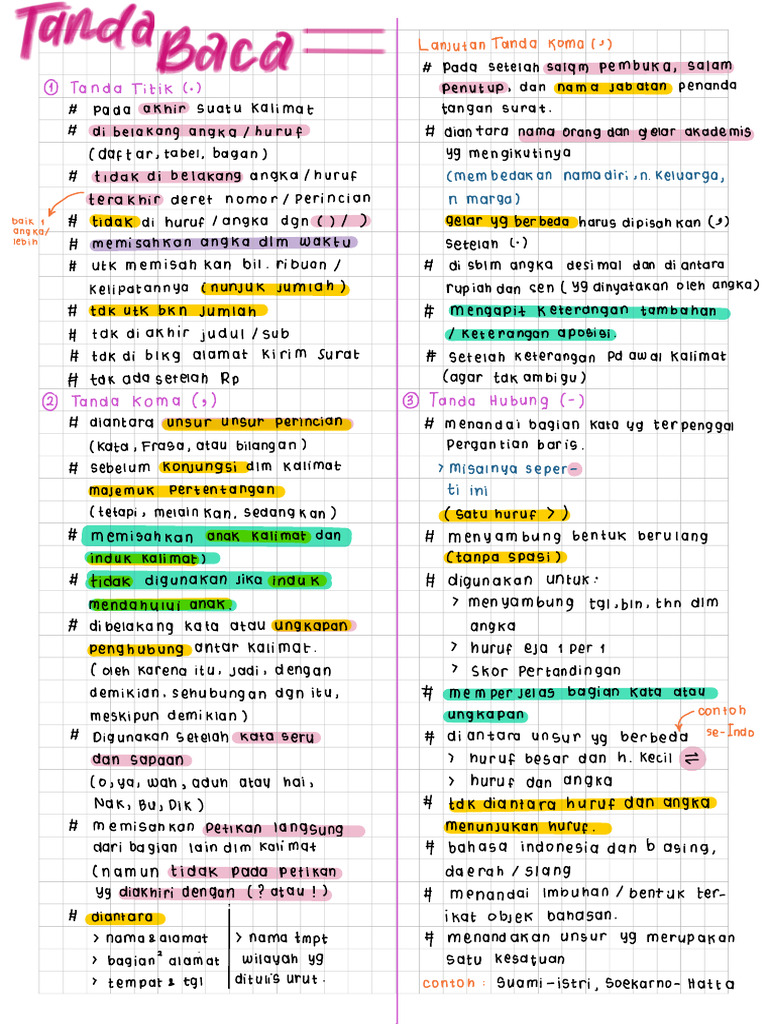 Tanda
Baca
① Tanda Titik (.)
# pada akhir suatu kalimat
# di belakang angka/huruf
(daftar, tabel, bagan)
# tidak di belakang angka/huruf
terakhir deret nomor/Perincian
baik 1
angka/
lebih
# tidak di huruf/angka dgn ( ) / )
# memisahkan angka dlm waktu
# utk memisahkan bil. ribuan /
kelipatannya (nunjuk jumlah)
# tdk utk bkn jumlah
# tdk di akhir judul/sub
# tdk di blkg alamat kirim surat
# tdk ada setelah Rp
② Tanda Koma (,)
# diantara unsur unsur perincian
(kata, Frasa, atau bilangan)
# sebelum konjungsi dlm kalimat
majemuk pertentangan
(tetapi, melainkan, sedangkan)
# memisahkan anak kalimat dan
induk kalimat)
# tidak digunakan jika induk
mendahului anak.
# dibelakang kata atau ungkapan
penghubung antar kalimat.
(oleh karena itu, jadi, dengan
demikian, sehubungan dgn itu,
meskipun demikian)
# Digunakan setelah kata seru
dan sapaan
(o, ya, wah, aduh atau hai,
Nak, Bu, Dik)
# memisahkan petikan langsung
dari bagian lain dlm kalimat
(namun tidak pada petikan
yg diakhiri dengan (? atau !)
# diantara
> nama & alamat
> bagian² alamat
> tempat & tgl
> nama tmpt
wilayah yg
ditulis urut.
Lanjutan Tanda Koma (,)
# pada setelah salam pembuka, salam
penutup, dan nama jabatan penanda
tangan surat.
# diantara nama orang dan gelar akademis
yg mengikutinya
(membedakan nama diri, n. keluarga,
n marga)
gelar yg berbeda harus dipisahkan (,)
setelah (.)
# di sblm angka desimal dan di antara
rupiah dan sen (yg dinyatakan oleh angka)
# mengapit keterangan tambahan
/ keterangan aposisi.
# setelah keterangan pd awal kalimat
(agar tdk ambigu)
③ Tanda Hubung (-)
# menandai bagian kata yg terpenggal
pergantian baris.
> misalnya seper-
ti ini
(satu huruf >)
# menyambung bentuk berulang
(tanpa spasi)
# digunakan untuk:
> menyambung tgl, bln, thn dlm
angka
> huruf eja 1 per 1
> Skor Pertandingan
# memperjelas bagian kata atau
ungkapan
contoh
se-Indo
# diantara unsur yg berbeda
> huruf besar dan h. kecil ⇌
> huruf dan angka
# tdk diantara huruf dan angka
menunjukan huruf.
# bahasa indonesia dan b asing,
daerah / slang
# menandai Imbuhan / bentuk ter-
ikat objek bahasan.
# menandakan unsur yg merupakan
satu kesatuan
contoh : Suami-istri, Soekarno-Hatta